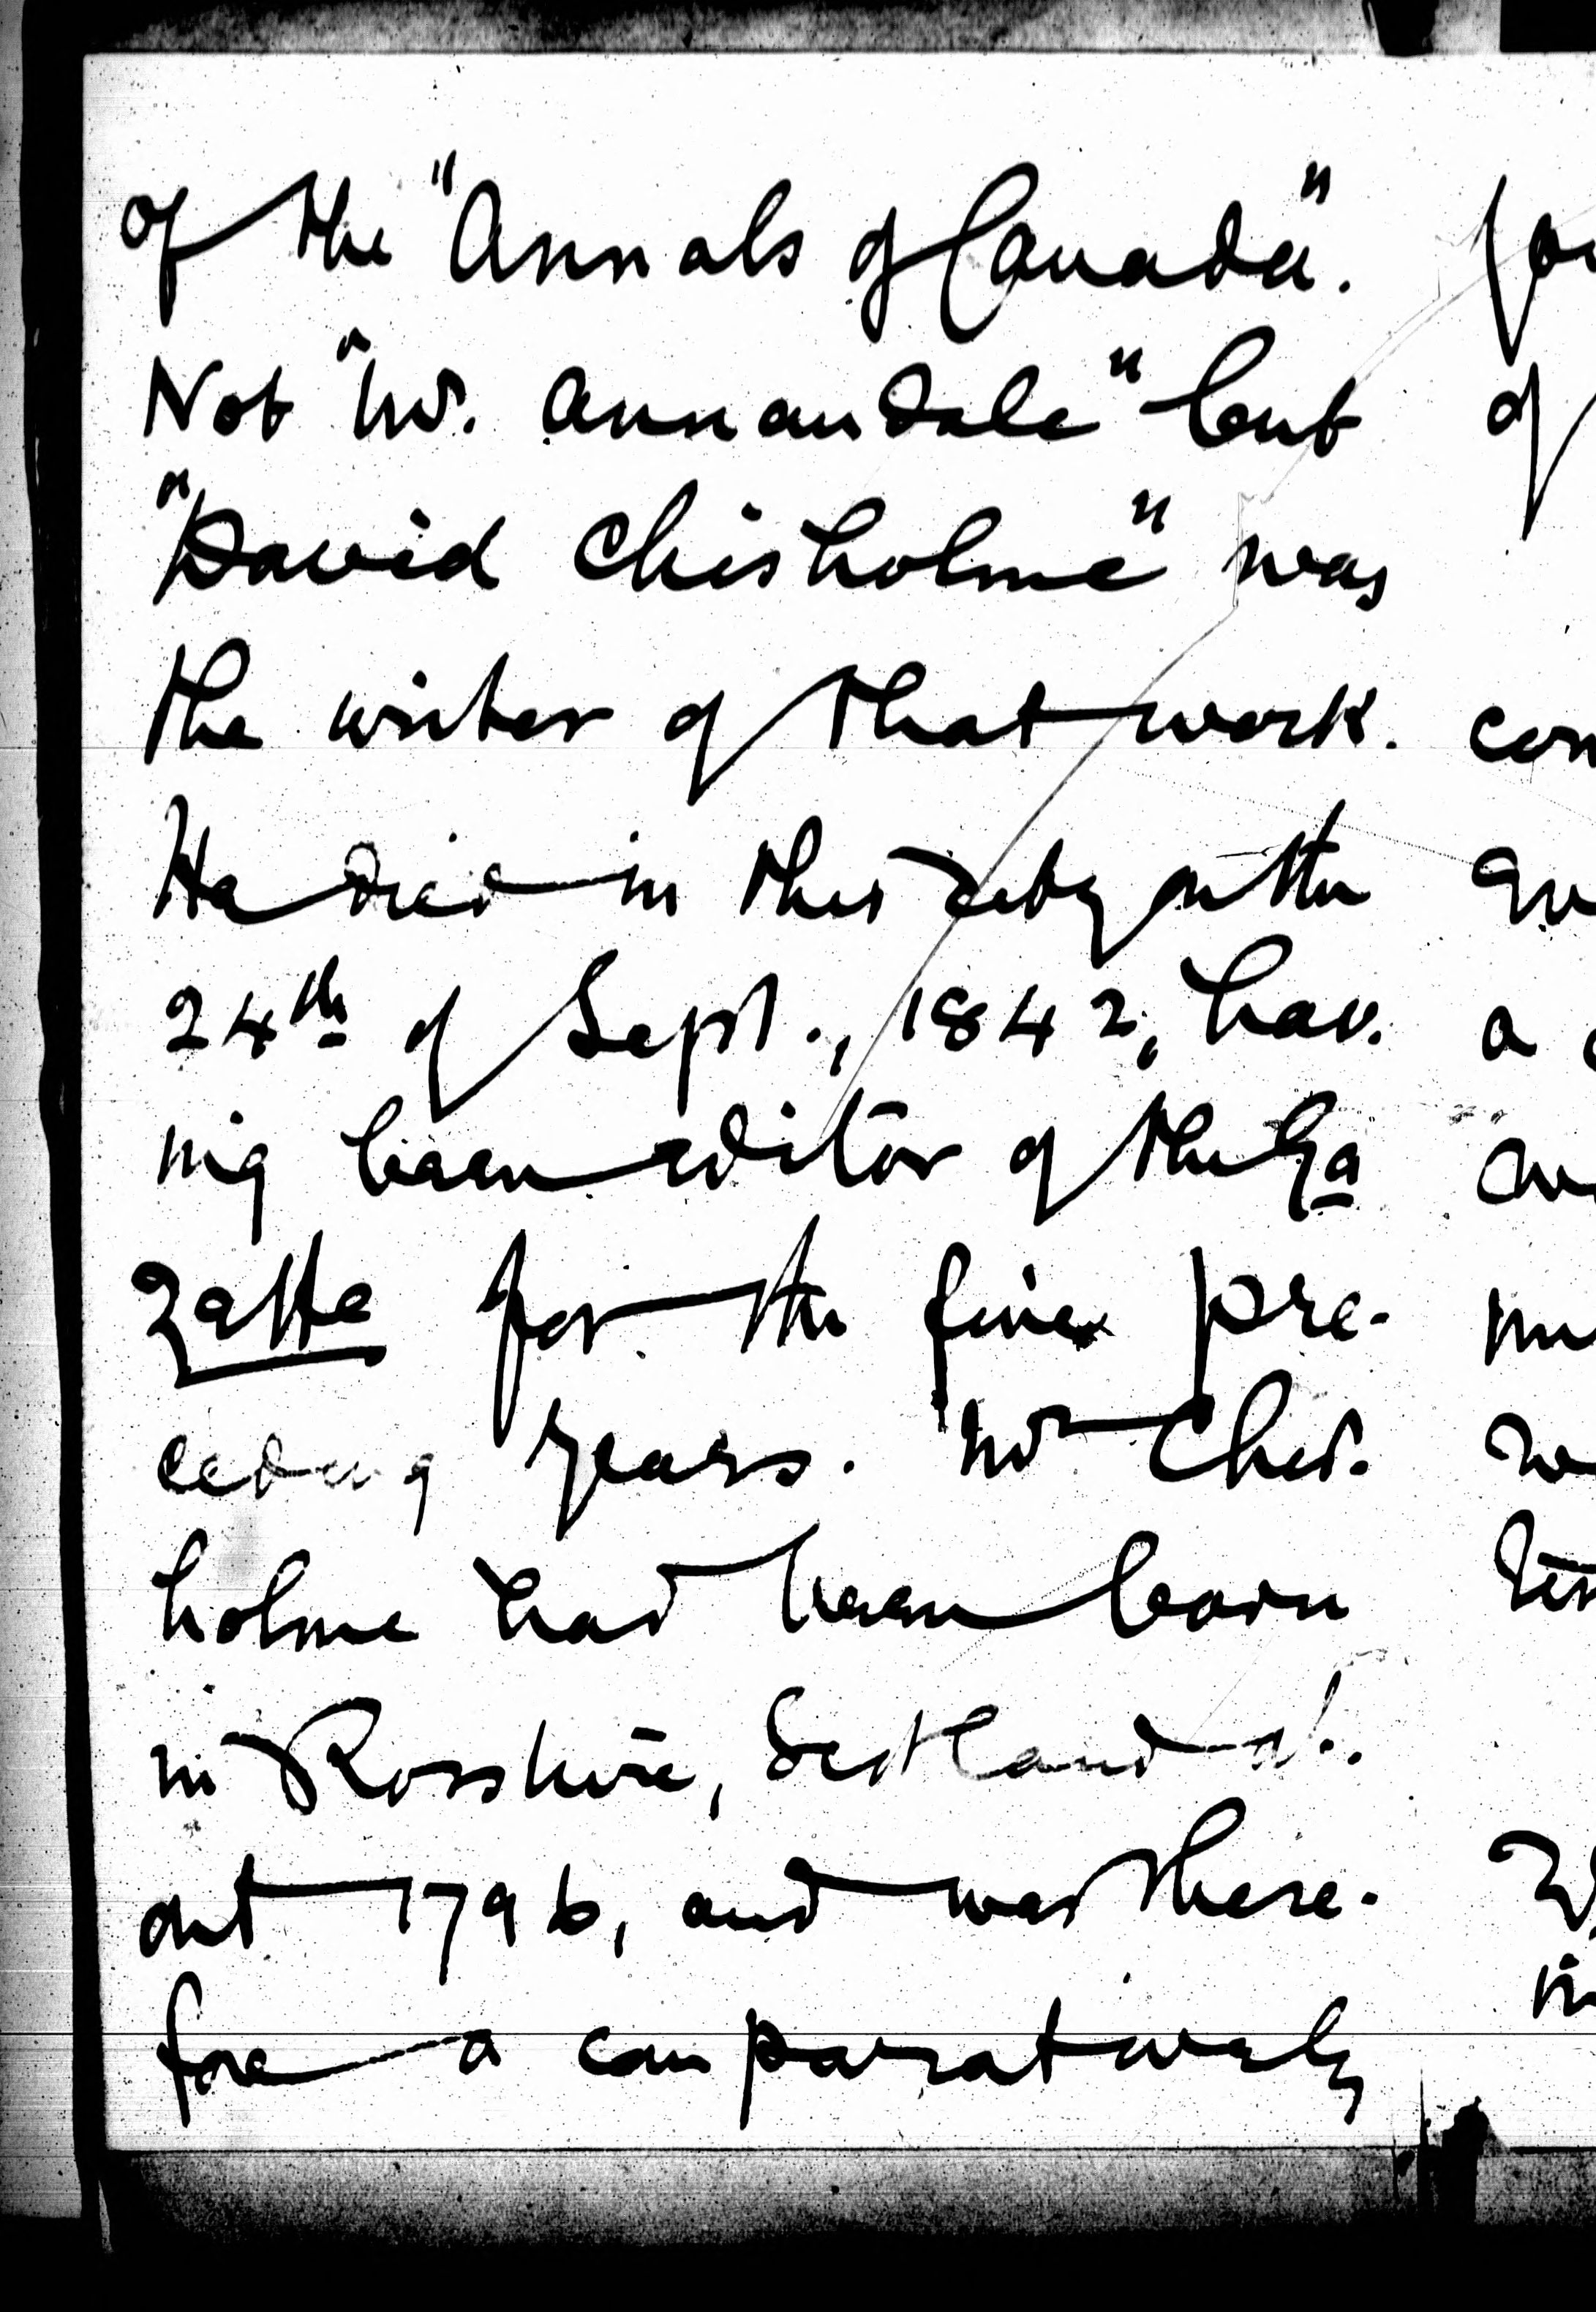 of the "Annals of Canada".
Not "Mr. Annandale" but
"David Chisholme" was
the writer of that work.
He died in this city on the
24th of Sept., 1842, hav-
ing been editor of the Ga
zette for the five pre-
ceding years. Mr Chis-
holme had been born
in Rosshire, Scotland ab-
out 1796, and was there-
fore a comparatively
of
con
a